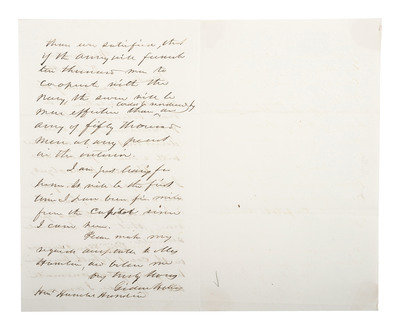 than we satisfied, that
if the army will furnish
ten thousand men to
cooperate with the
navy, the same will be
more effective than an
army of fifty thousand
men at any point
in the interior.
I am just leaving for
home. It will be the first
time I have been five miles
from the Capitol since
I came here.
Please make my
regards acceptable to Mrs
Hamlin, and believe me
Very truly Yours
Gideon Welles
Hon Hannibal Hamlin